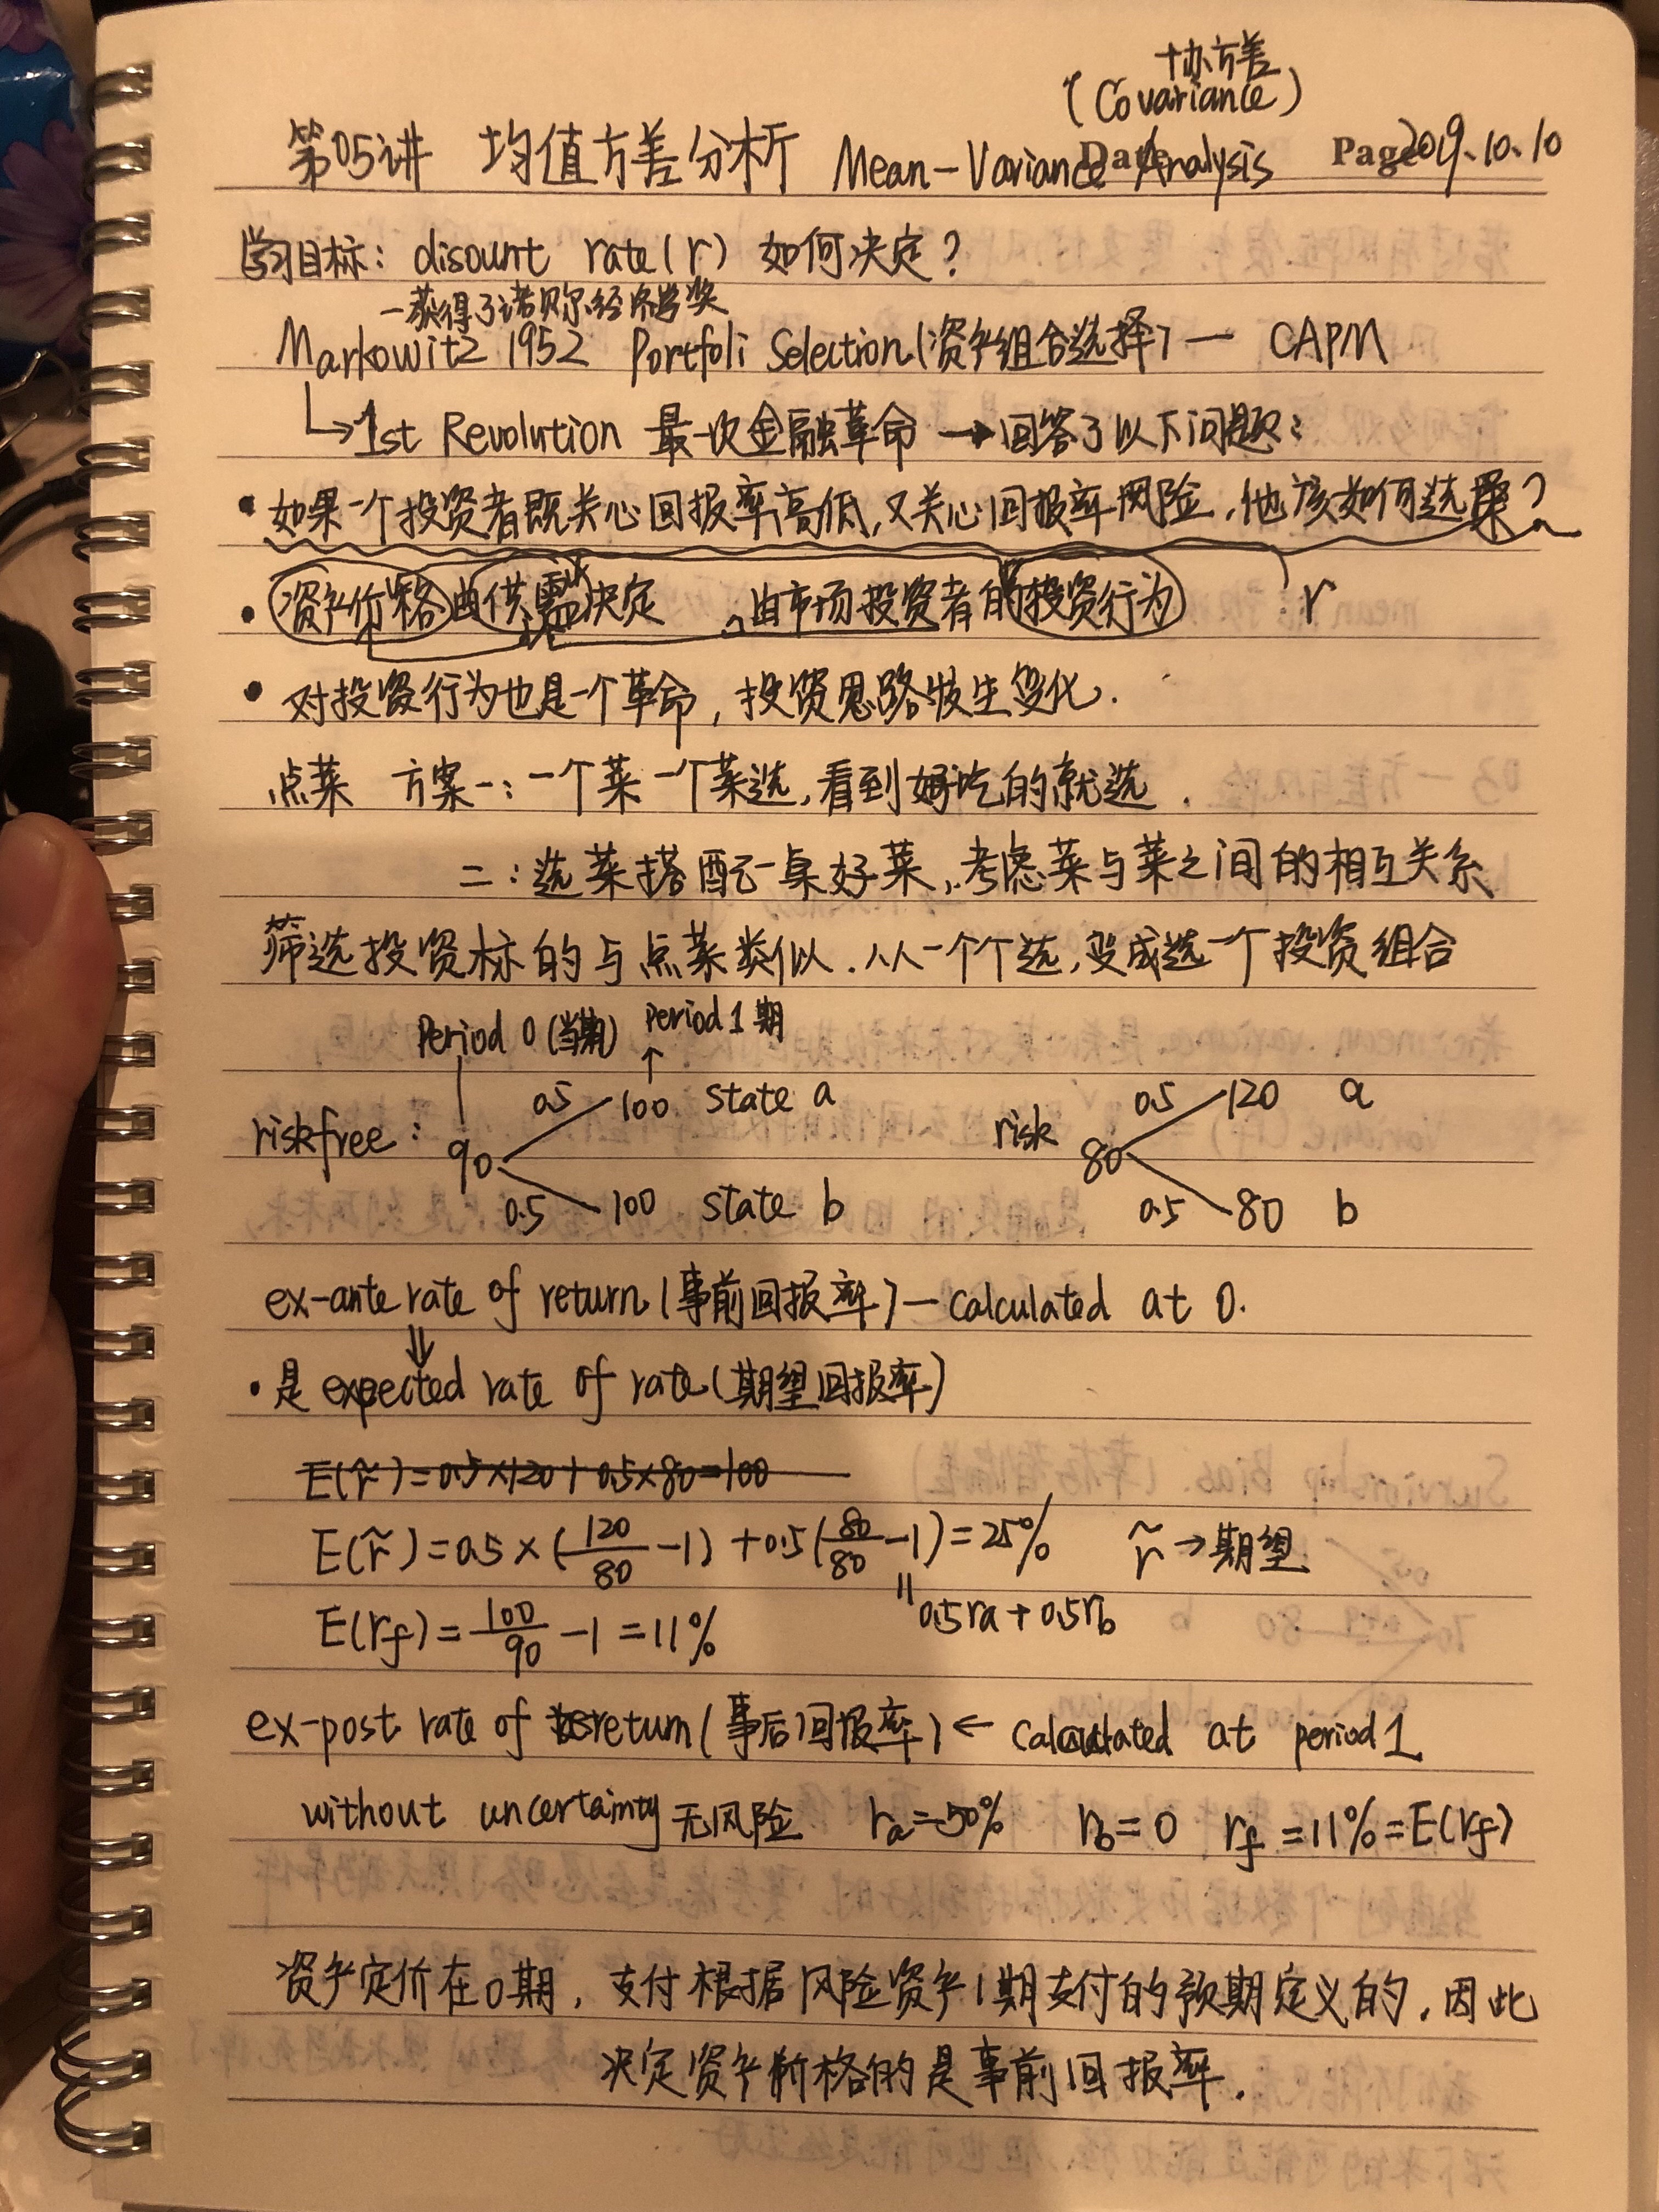 协方差
(Covariance)
第05讲 均值方差分析 Mean-Variance Analysis Date Page 2019.10.10
学习目标: disount rate(r) 如何决定?
—获得了诺贝尔经济学奖
Markowitz 1952 Portfoli Selection(资产组合选择) — CAPM
↳1st Revolution 最一次金融革命 → 回答了以下问题:
• 如果一个投资者既关心回报率高低,又关心回报率风险,他该如何选票?
• 资产价格由供需决定 由市场投资者的投资行为 r
• 对投资行为也是一个革命,投资思路发生变化.
点菜 方案一: 一个菜一个菜选,看到好吃的就选.
二: 选菜搭配一桌好菜,考虑菜与菜之间的相互关系
筛选投资标的与点菜类似.从一个个选,变成选一个投资组合
Period 0 (当期) Period 1 期
0.5 100 state a 0.5 120 a
riskfree: 90 risk 80
0.5 100 state b 0.5 80 b
ex-ante rate of return(事前回报率)—calculated at 0.
⇓
• 是 expected rate of rate(期望回报率)
E(r̃)=0.5×120+0.5×80=100
E(r̃)=0.5×(120/80 -1)+0.5(80/80 -1)=25% r̃→期望
=0.5ra+0.5rb
E(rf)=100/90 -1=11%
ex-post rate of return(事后回报率)← calculated at period 1
without uncertainty 无风险 ra=50% rb=0 rf=11%=E(rf)
资产定价在0期,支付根据风险资产1期支付的预期定义的,因此
决定资产价格的是事前回报率.